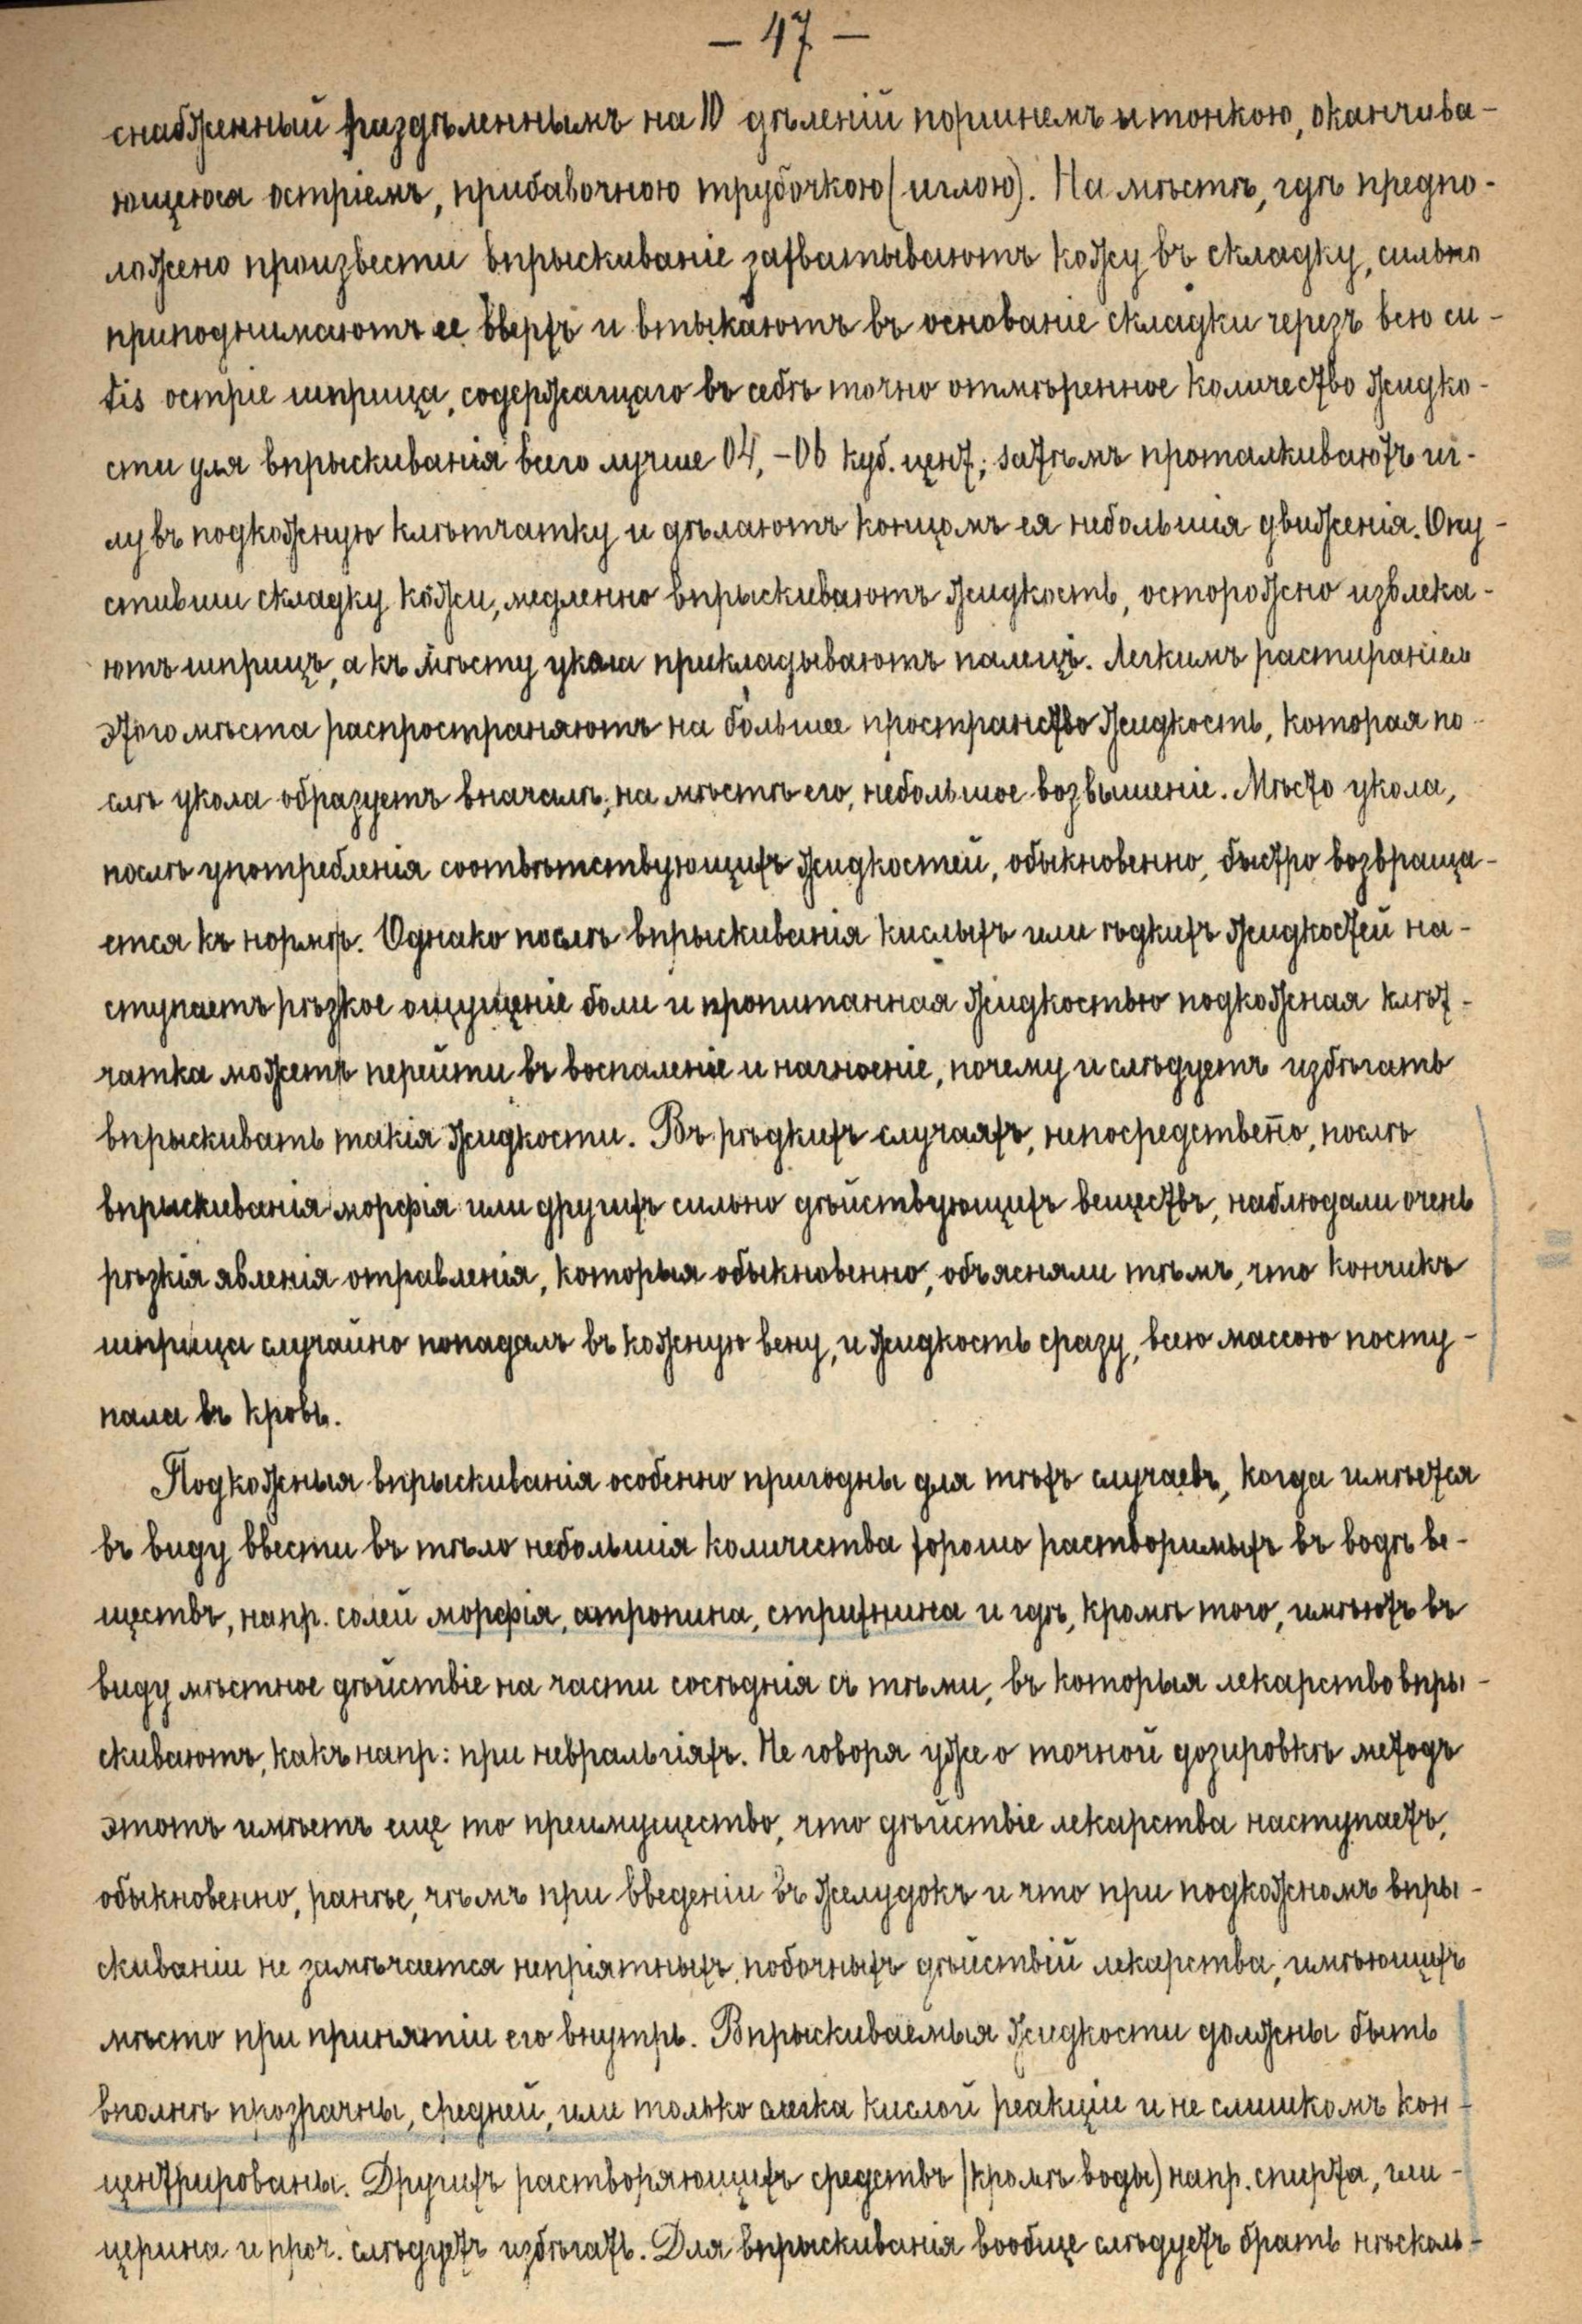 — 47 —
снабженный раздѣленнымъ на 10 дѣленій поршнемъ и тонкою, оканчива-
ющеюся остріемъ, прибавочною трубочкою (иглою). На мѣстѣ, гдѣ предпо-
ложено произвести впрыскиваніе захватываютъ кожу въ складку, сильно
приподнимаютъ ее вверхъ и втыкаютъ въ основаніе складки черезъ всю cu-
tis остріе шприца, содержащаго въ себѣ точно отмѣренное количество жидко-
сти для впрыскиванія всего лучше 04,-06 куб. цент; затѣмъ проталкиваютъ иг-
лу въ подкожную клѣтчатку и дѣлаютъ концомъ ея небольшія движенія. Опу-
стивши складку кожи, медленно впрыскиваютъ жидкость, осторожно извлека-
ютъ шприцъ, а къ мѣсту укола прикладываютъ палецъ. Легкимъ растираніемъ
этого мѣста распространяютъ на большее пространство жидкость, которая по-
слѣ укола образуетъ вначалѣ, на мѣстѣ его, небольшое возвышеніе. Мѣсто укола,
послѣ употребленія соотвѣтствующихъ жидкостей, обыкновенно, быстро возвраща-
ется къ нормѣ. Однако послѣ впрыскиванія кислыхъ или ѣдкихъ жидкостей на-
ступаетъ рѣзкое ощущеніе боли и пропитанная жидкостью подкожная клѣт-
чатка можетъ перейти въ воспаленіе и нагноеніе, почему и слѣдуетъ избѣгать
впрыскивать такія жидкости. Въ рѣдкихъ случаяхъ, непосредственно, послѣ
впрыскиванія морфія или другихъ сильно дѣйствующихъ веществъ, наблюдали очень
рѣзкія явленія отравленія, которыя обыкновенно, объясняли тѣмъ, что кончикъ
шприца случайно попадалъ въ кожную вену, и жидкость сразу, всею массою посту-
пала въ кровь.
Подкожныя впрыскиванія особенно пригодны для тѣхъ случаевъ, когда имѣется
въ виду ввести въ тѣло небольшія количества хорошо растворимыхъ въ водѣ ве-
ществъ, напр. солей морфія, атропина, стрихнина и гдѣ, кромѣ того, имѣютъ въ
виду мѣстное дѣйствіе на части сосѣднія съ тѣми, въ которыя лекарство впры-
скиваютъ, какъ напр: при невральгіяхъ. Не говоря уже о точной дозировкѣ методъ
этотъ имѣетъ еще то преимущество, что дѣйствіе лекарства наступаетъ,
обыкновенно, ранѣе, чѣмъ при введеніи въ желудокъ и что при подкожномъ впры-
скиваніи не замѣчается непріятныхъ, побочныхъ дѣйствій лекарства, имѣющихъ
мѣсто при принятіи его внутрь. Впрыскиваемыя жидкости должны быть
вполнѣ прозрачны, средней, или только слегка кислой реакціи и не слишкомъ кон-
центрированы. Другихъ растворяющихъ средствъ (кромѣ воды) напр. спирта, гли-
церина и проч. слѣдуетъ избѣгать. Для впрыскиванія вообще слѣдуетъ брать нѣсколь-